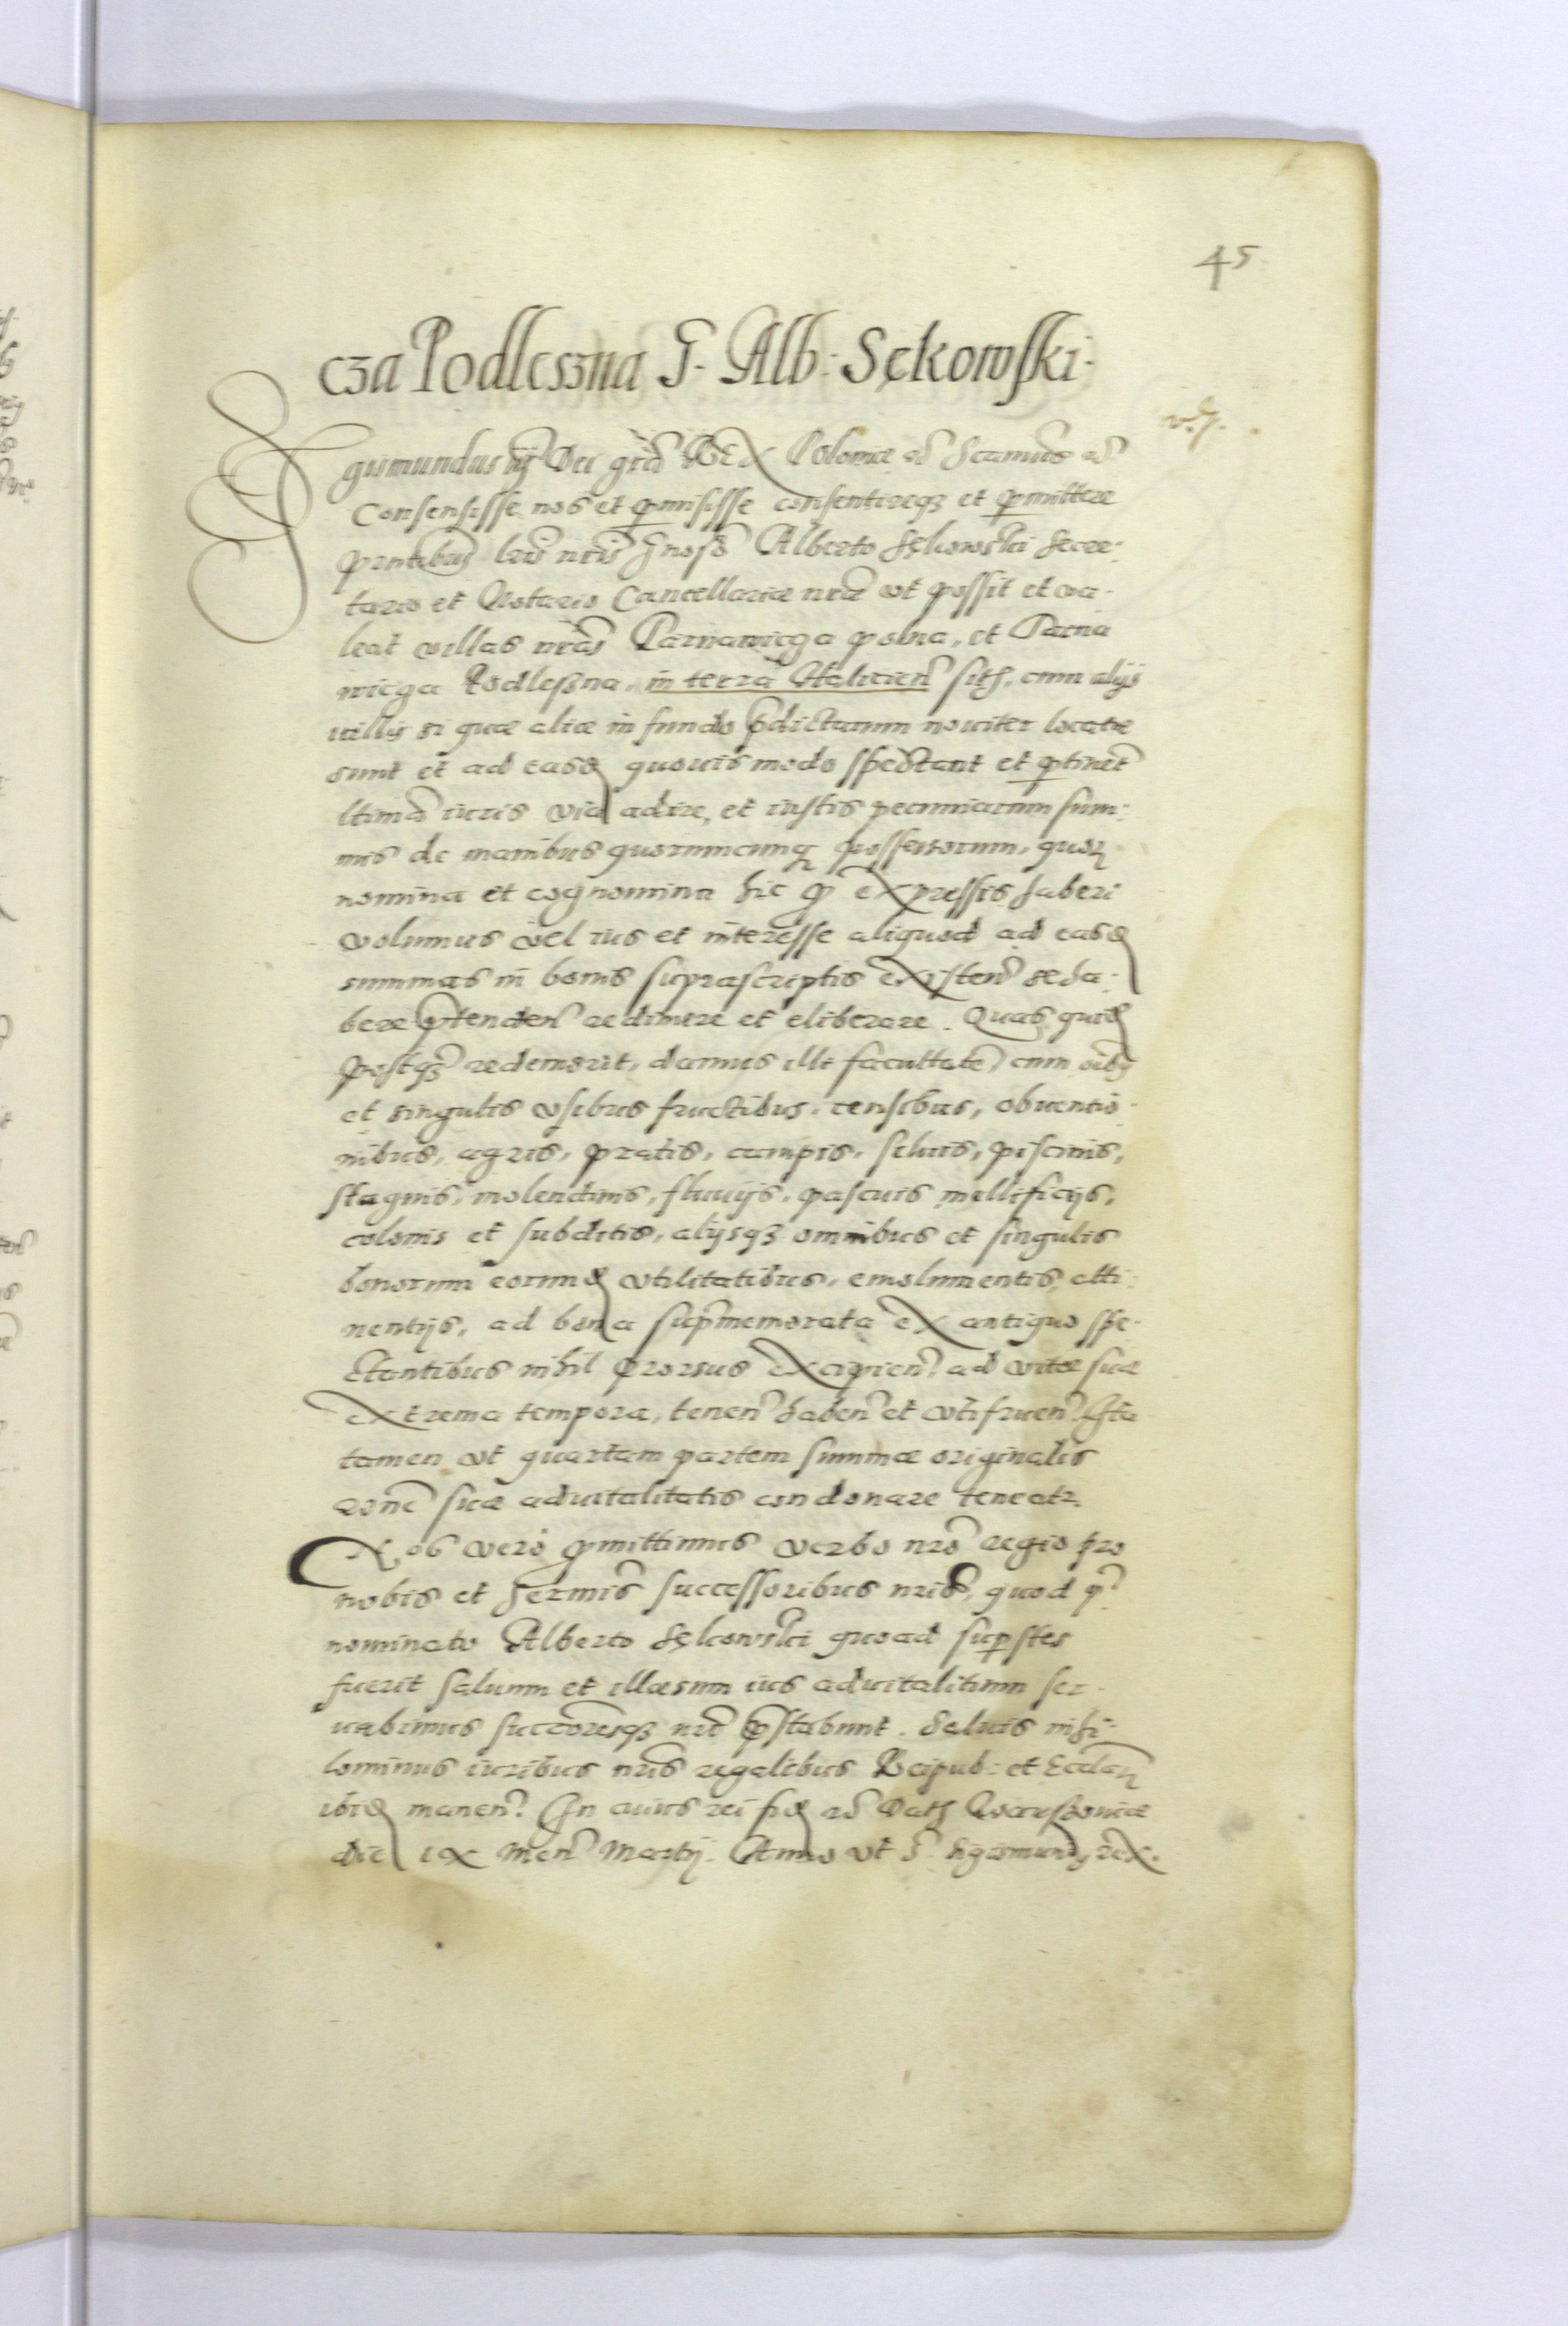 45
cza Podleszna G. Alb: Sękowski.
Sigismundus iij Dei gra REX Poloniæ etc Significamus etc
Consensisse nos et pmisisse consentireqȝ et pmittere
pntibus lris nris Gnoso Alberto Sękowski Secre-
tario et Notario Cancellariæ nræ vt possit et va-
leat villas nras Tarnawicza polna, et Tarna
wicza Podleszna, in terra Haliciens sitas, cum alijs
villis si quæ aliæ in fundo pdictarum nouiter locatæ
sunt et ad easd quouis modo spectant et ptinet
ltima iuris via adire, et iustis pecuniarum sum-
mis de manibus quorumcunqȝ possessorum, quoꝝ
nomina et cognomina hic p expressis haberi
volumus vel ius et interesse aliquod ad easd
summas in bonis suprascriptis existen se ha-
bere ptenden redimere et eliberare. Quas quid
postqȝ redemerit, damus illi facultate cum oibus
et singulis vsibus fructibus, censibus, obuentio-
nibus, agris, pratis, campis, siluis, piscinis,
stagnis, molendinis, fluuijs, pascuis mellificijs,
colonis et subditis, alijsqȝ omnibus et singulis
bonorum eorumd vtilitatibus, emolumentis, atti-
nentijs, ad bona supmemorata ex antiquo spe-
ctantibus nihil prorsus excipien, ad vitæ suæ
extrema tempora, tenen haben et vtifruen. Ita
tamen vt quartam partem summæ originalis
rone suæ aduitalitatis condonare teneatr.
Nos vero pmittimus verbo nro regio pro
nobis et Sermis successoribus nris, quod p
nominato Alberto Sękowski quoad supstes
fuerit saluum et illæsum ius aduitalitium ser-
uabimus succoresqȝ nri pstabunt. Saluis nihi-
lominus iuribus nris regalibus Reipub: et Ecclaꝝ
ibid manen. In cuius rei fid etc Dat Warszouiæ
die IX Men Martij. Anno vt s. Sigismundus rex.